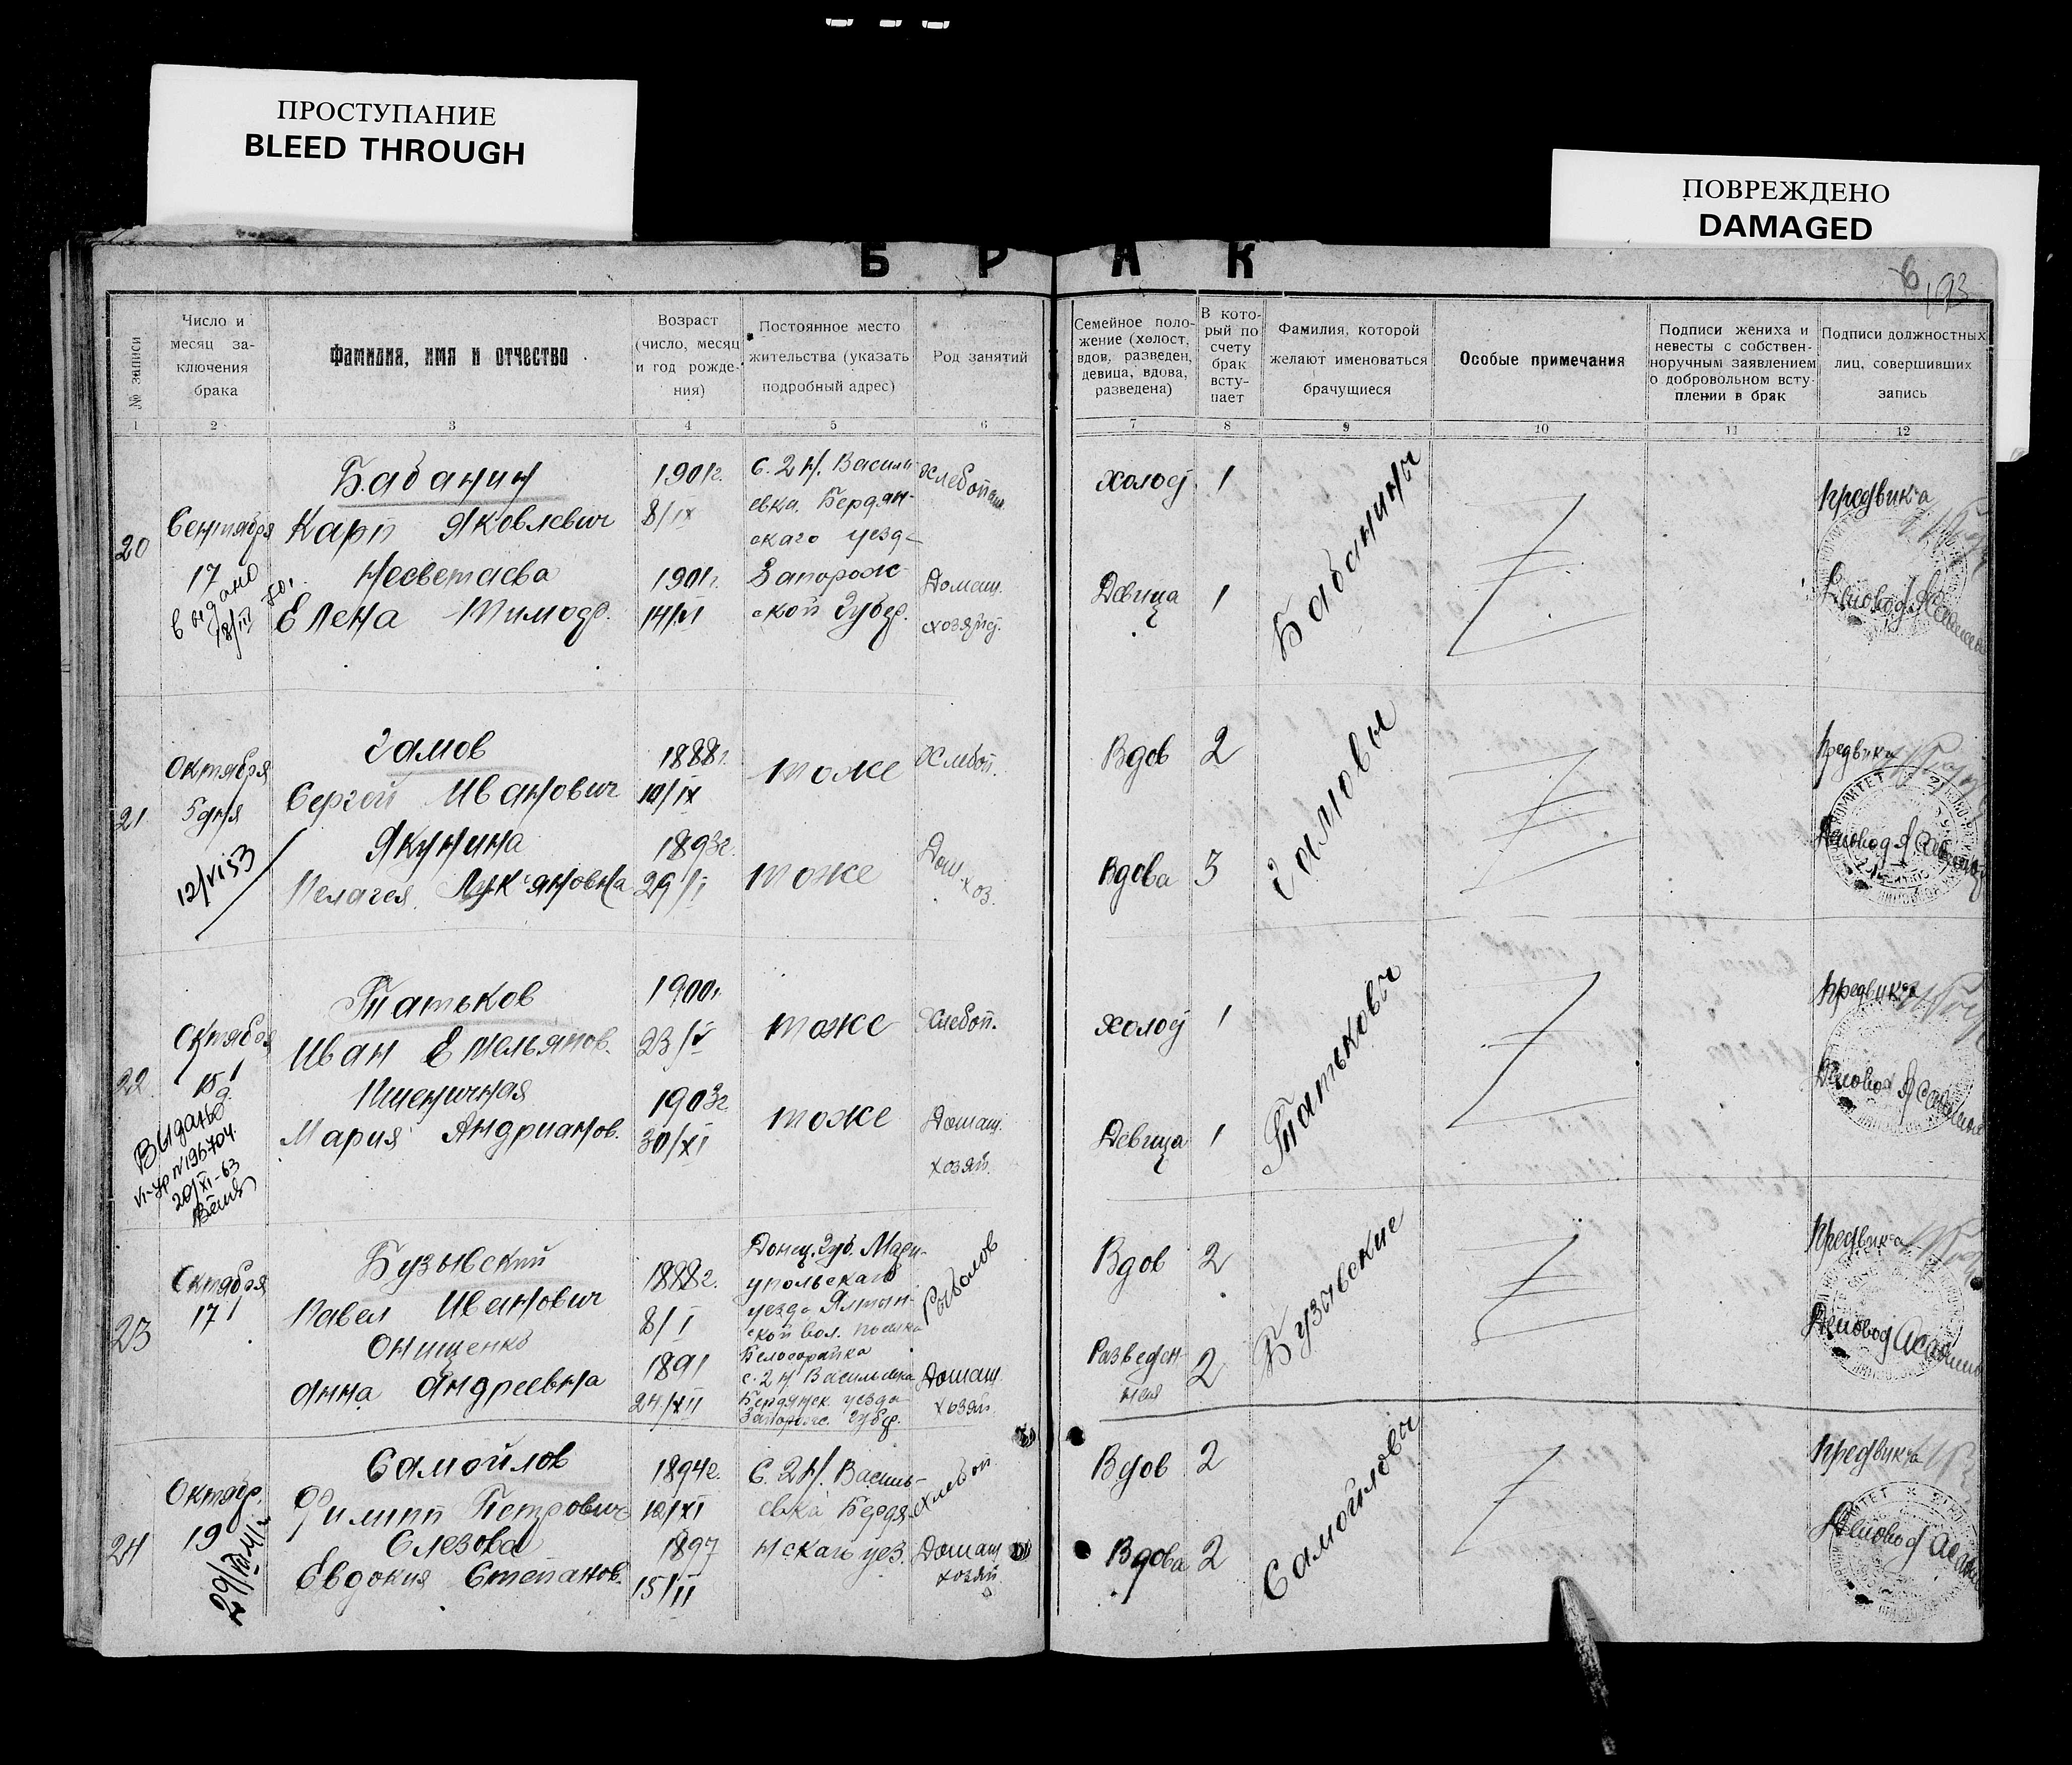 ПРОСТУПАНИЕ
BLEED THROUGH
ПОВРЕЖДЕНО
DAMAGED
БРАК
6
193
№ записи
Число и
месяц за-
ключения
брака
Фамилия, имя и отчество
Возраст
(число, месяц
и год рожде-
ния)
Постоянное место
жительства (указать
подробный адрес)
Род занятий
Семейное поло-
жение (холост,
вдов, разведен,
девица, вдова,
разведена)
В кото-
рый по
счету
брак
всту-
пает
Фамилия, которой
желают именоваться
брачущиеся
Особые примечания
Подписи жениха и
невесты с собствен-
норучным заявлением
о добровольном всту-
плении в брак
Подписи должностных
лиц, совершивших
запись
1 2 3 4 5 6 7 8 9 10 11 12
20
Сентября
17
выдано
Бабанин
Карп Яковлевич
Несветаева
Елена Тимоф.
1901г.
8/IX
1901г.
14/VI
С. 2 Н. Василь
евка, Бердян-
скаго уезд-
Запорож-
ской Губер.
Хлебопаш
Домаш.
хозяйс.
Холос
Девица
1
1
Бабанины
Предвика
21
Октября
5 дня
12/VI 53
Гамов
Сергей Иванович
Якунина
Пелагея Лук'яновна
1888г.
10/IX
1893г.
29/I
тоже
тоже
Хлебоп.
Дом.
хоз.
Вдов
Вдова
2
3
Гамовы
Предвика
22
Октября
15
Выдано
20/XI-63
Татьков
Иван Емельянов.
Пшеничная
Мария Андрианов.
1900г.
23/V
1903г.
30/XI
тоже
тоже
Хлебоп.
Домаш.
хозяй.
Холос
Девица
1
1
Татьковы
Предвика
23
Октября
17
Бузывский
Павел Иванович
Онищенко
Анна Андреевна
1888г.
8/I
1891
24/XII
Донец. Губ. Мари-
упольскаго
уезда Ялтин-
ской вол. поселка
Белосарайка
с. 2 Н Васильевка
Бердянск. уезда
Запорож. Губер.
Рыболов
Домаш.
хозяй.
Вдов
Разведен
ная
2
2
Бузывские
Предвика
24
Октябр.
19
Самойлов
Филипп Петрович
Слезова
Евдокия Степанов.
1894г.
12/XI
1897
15/II
С. 2 Н. Василь-
евка Бердя
нскаго уез.
Хлебоп
Домаш
хозяй
Вдов
Вдова
2
2
Самойловы
Предвика